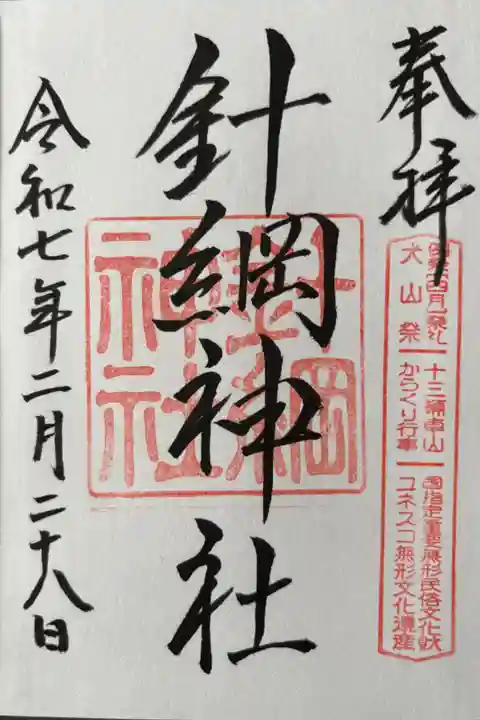 奉拝
犬山祭
十三輌車山
からくり行事
国指定重要無形民俗文化財
ユネスコ無形文化遺産
針綱神社
針綱神社
令和七年二月二十八日